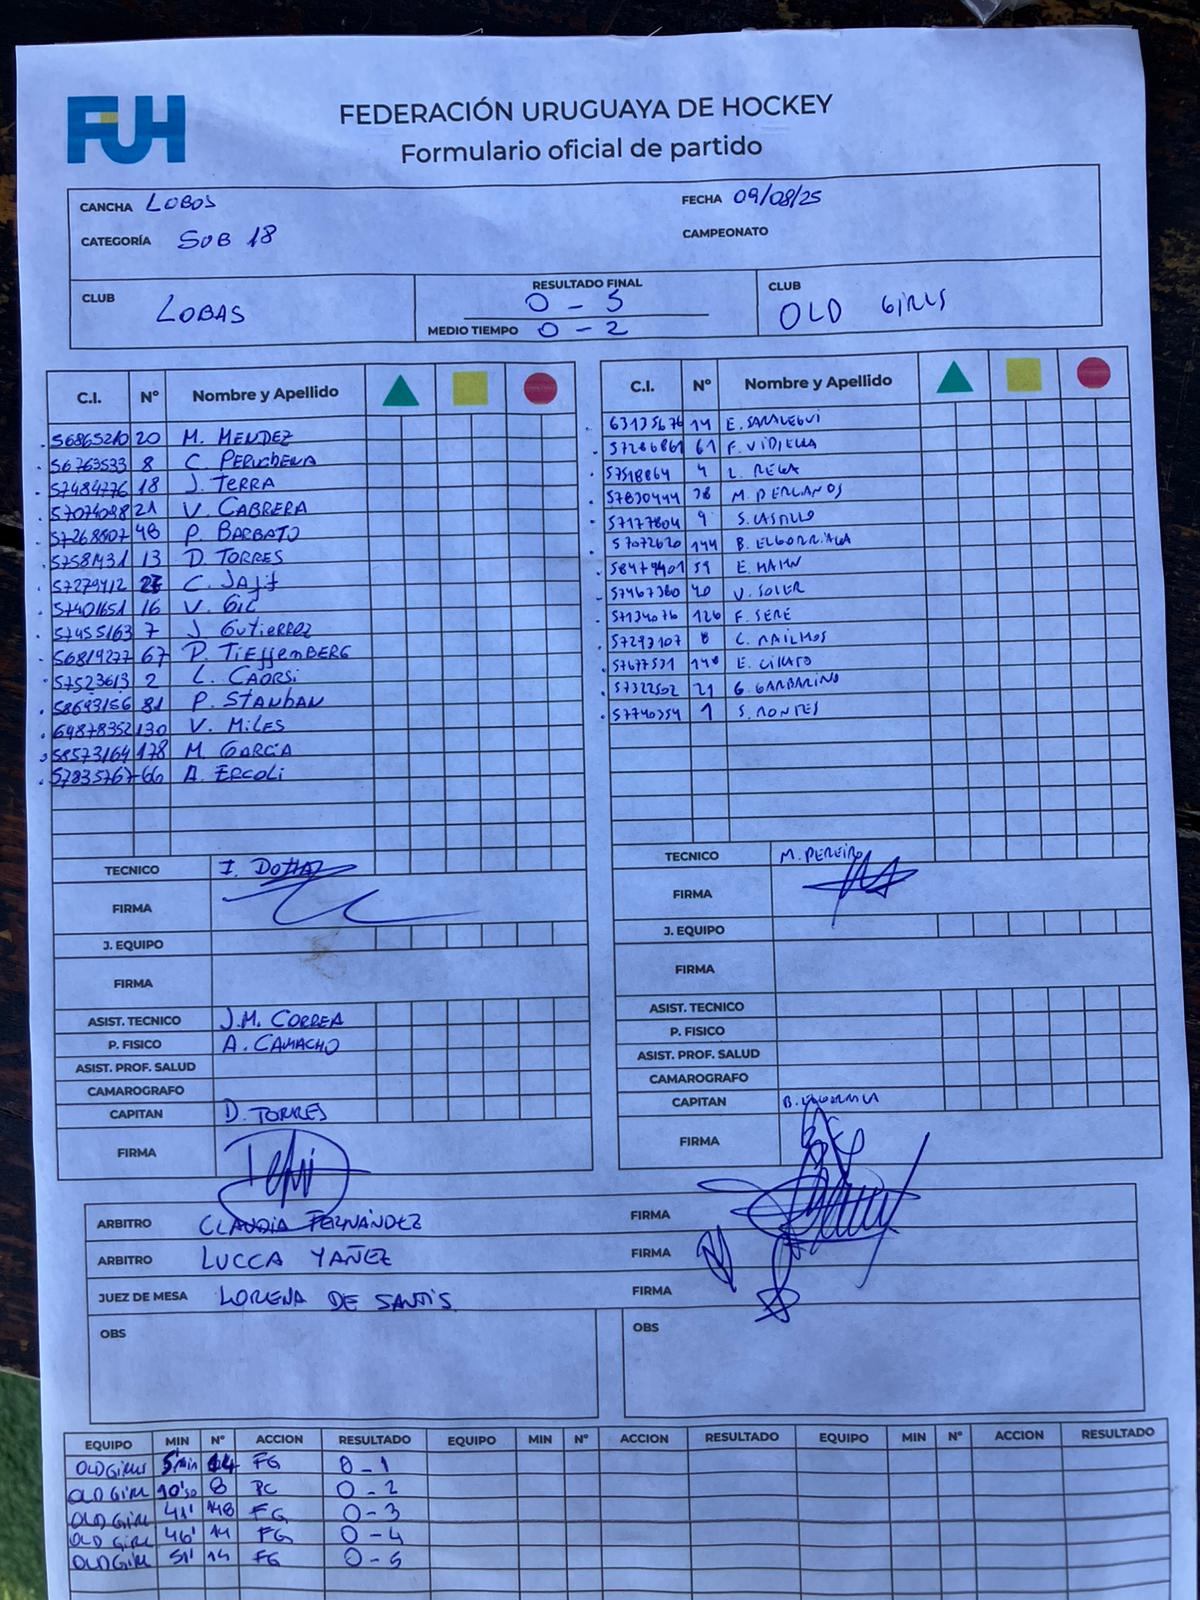 FUH
FEDERACIÓN URUGUAYA DE HOCKEY
Formulario oficial de partido
CANCHA LOBOS FECHA 09/08/25
CATEGORÍA SUB 18 CAMPEONATO
CLUB LOBAS RESULTADO FINAL 0 - 5 CLUB OLD GIRLS
MEDIO TIEMPO 0 - 2
C.I. Nº Nombre y Apellido
56865210 20 M. MENDEZ
56763533 8 C. PERUCHENA
57484776 18 J. TERRA
57074098 21 V. CABRERA
57268507 48 P. BARBATO
13 D. TORRES
57279412 C.
57401651 16 V. GIL
57455163 7 J. GUTIERREZ
56819277 67 P. TIEFFEMBERG
57523613 2 L. CAORSI
58693156 81 P.
69878352 130 V. MILES
58573164 178 M. GARCÍA
57835767 66 A. ERCOLI
TECNICO I.
FIRMA
J. EQUIPO
FIRMA
ASIST. TECNICO J.M. CORREA
P. FISICO A. CAMACHO
ASIST. PROF. SALUD
CAMAROGRAFO
CAPITAN D. TORRES
FIRMA
C.I. Nº Nombre y Apellido
63135676 14 E. SARALEGUI
57286861 61 F. VIDIELLA
57518864 4 L. REGA
57830444 M.
57177804 9 S. CASTILLO
57072620 144 B. ELGORRIAGA
59 E. HAHN
57467380 V. SOLER
57134076 126 F. SERE
57293107 8 C. MAILHOS
57677531 148 E. CIKATO
57322502 21 G. GARBARINO
57740354 1 S. MONTES
TECNICO M. PEREIRO
FIRMA
J. EQUIPO
FIRMA
ASIST. TECNICO
P. FISICO
ASIST. PROF. SALUD
CAMAROGRAFO
CAPITAN B. ELGORRIAGA
FIRMA
ARBITRO CLAUDIA FERNÁNDEZ FIRMA
ARBITRO LUCCA YAÑEZ FIRMA
JUEZ DE MESA LORENA DE SANTIS FIRMA
OBS OBS
EQUIPO MIN Nº ACCION RESULTADO EQUIPO MIN Nº ACCION RESULTADO EQUIPO MIN Nº ACCION RESULTADO
OLD GIRLS 5'min 14 FG 0 - 1
OLD GIRL 10'50 8 PC 0 - 2
OLD GIRL 41' 148 FG 0 - 3
OLD GIRL 46' 14 FG 0 - 4
OLD GIRL 51' 14 FG 0 - 5